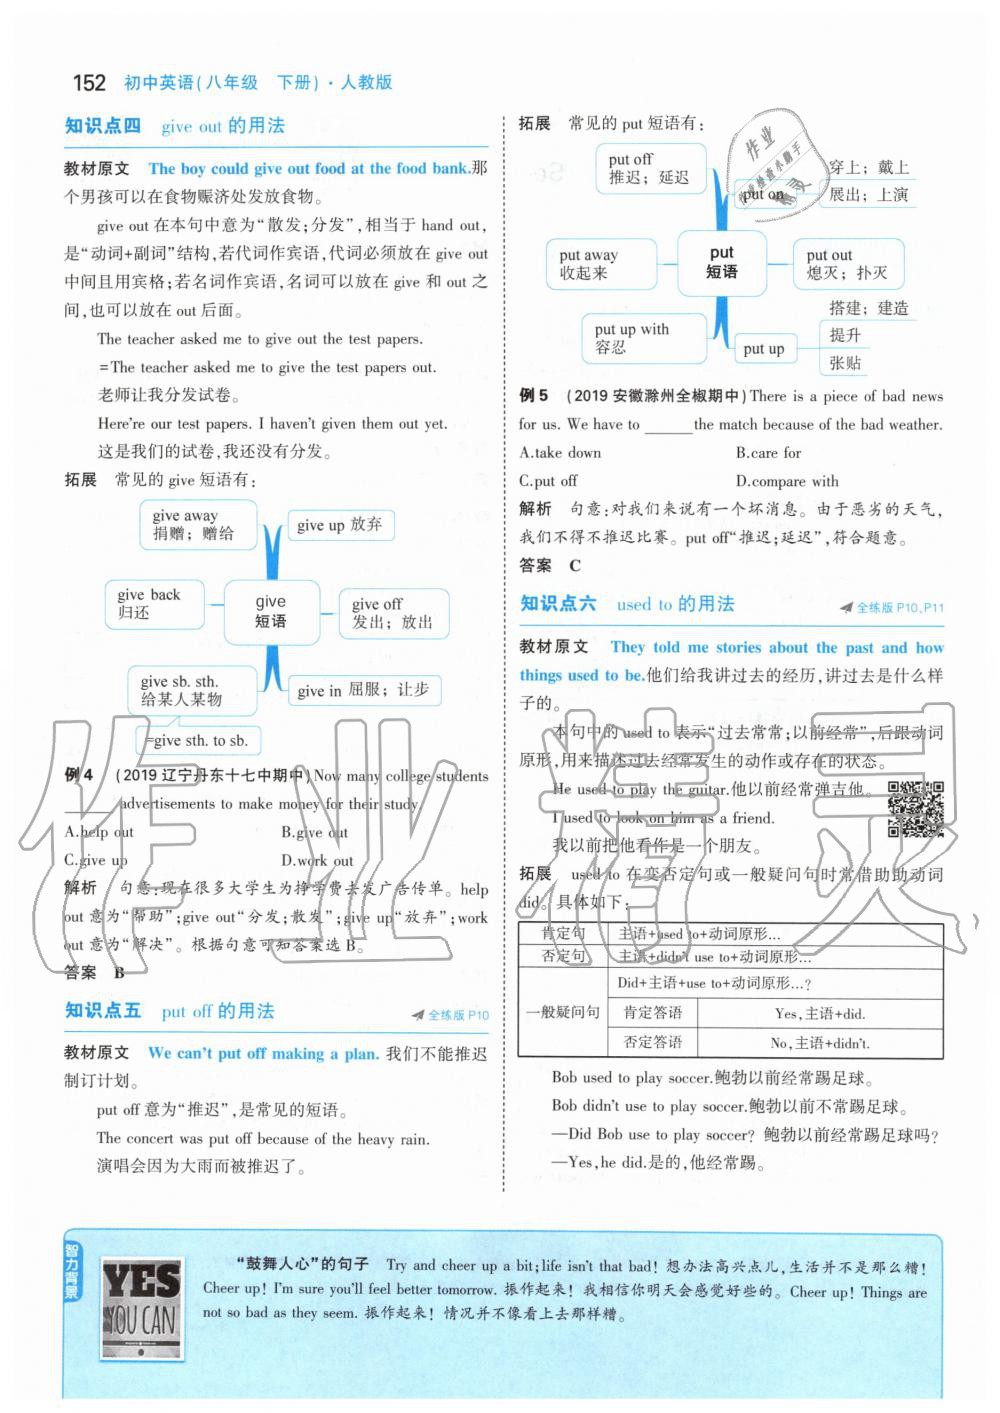 152 初中英语(八年级 下册)·人教版
知识点四 give out 的用法
教材原文 The boy could give out food at the food bank.那
个男孩可以在食物赈济处发放食物。
give out 在本句中意为“散发;分发”,相当于 hand out,
是“动词+副词”结构,若代词作宾语,代词必须放在 give out
中间且用宾格;若名词作宾语,名词可以放在 give 和 out 之
间,也可以放在 out 后面。
The teacher asked me to give out the test papers.
=The teacher asked me to give the test papers out.
老师让我分发试卷。
Here're our test papers. I haven't given them out yet.
这是我们的试卷,我还没有分发。
拓展 常见的 give 短语有:
give away
捐赠；赠给
give up 放弃
give back
归还
give
短语
give off
发出；放出
give sb. sth.
给某人某物
give in 屈服；让步
=give sth. to sb.
例 4 (2019 辽宁丹东十七中期中)Now many college students
______ advertisements to make money for their study.
A.help out B.give out
C.give up D.work out
解析 句意:现在很多大学生为挣学费去发广告传单。help
out 意为“帮助”;give out“分发;散发”;give up“放弃”;work
out 意为“解决”。根据句意可知答案选 B。
答案 B
知识点五 put off 的用法 全练版 P10
教材原文 We can't put off making a plan. 我们不能推迟
制订计划。
put off 意为“推迟”,是常见的短语。
The concert was put off because of the heavy rain.
演唱会因为大雨而被推迟了。
拓展 常见的 put 短语有:
put off
推迟；延迟
put on
穿上；戴上
展出；上演
put away
收起来
put
短语
put out
熄灭；扑灭
put up with
容忍
put up
搭建；建造
提升
张贴
例 5 (2019 安徽滁州全椒期中)There is a piece of bad news
for us. We have to ______the match because of the bad weather.
A.take down B.care for
C.put off D.compare with
解析 句意:对我们来说有一个坏消息。由于恶劣的天气,
我们不得不推迟比赛。put off“推迟;延迟”,符合题意。
答案 C
知识点六 used to 的用法 全练版 P10、P11
教材原文 They told me stories about the past and how
things used to be.他们给我讲过去的经历,讲过去是什么样
子的。
本句中的 used to 表示“过去常常;以前经常”,后跟动词
原形,用来描述过去经常发生的动作或存在的状态。
He used to play the guitar.他以前经常弹吉他。
I used to look on him as a friend.
我以前把他看作是一个朋友。
拓展 used to 在变否定句或一般疑问句时常借助助动词
did。具体如下:
肯定句 主语+used to+动词原形…
否定句 主语+didn't use to+动词原形…
一般疑问句 Did+主语+use to+动词原形…?
肯定答语 Yes,主语+did.
否定答语 No,主语+didn't.
Bob used to play soccer.鲍勃以前经常踢足球。
Bob didn't use to play soccer.鲍勃以前不常踢足球。
—Did Bob use to play soccer? 鲍勃以前经常踢足球吗?
—Yes,he did.是的,他经常踢。
智力背景
YES
YOU CAN
“鼓舞人心”的句子 Try and cheer up a bit;life isn't that bad! 想办法高兴点儿,生活并不是那么糟!
Cheer up! I'm sure you'll feel better tomorrow. 振作起来! 我相信你明天会感觉好些的。Cheer up! Things are
not so bad as they seem. 振作起来! 情况并不像看上去那样糟。
作业精灵
作业
精灵